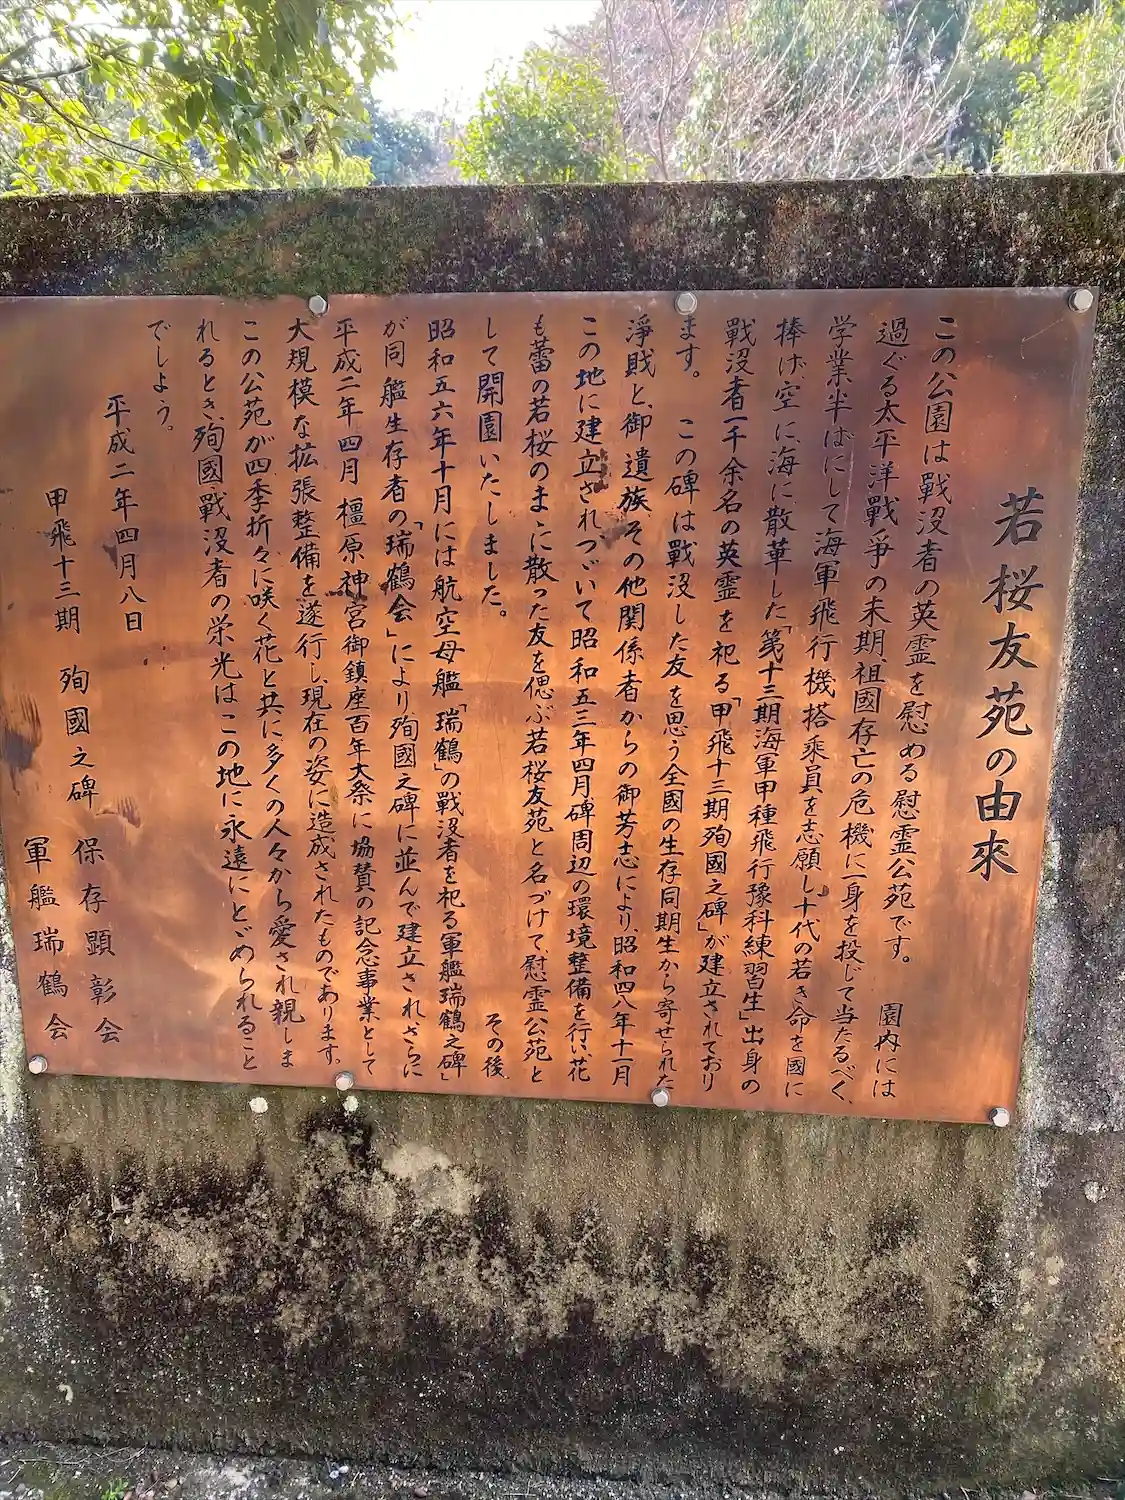 若桜友苑の由來
この公園は戰没者の英霊を慰める慰霊公苑です。　園内には
過ぐる太平洋戰争の末期、祖國存亡の危機に一身を投じて当たるべく、
学業半ばにして海軍飛行機搭乗員を志願し、十代の若き命を國に
捧げ、空に、海に散華した「第十三期海軍甲種飛行豫科練習生」出身の
戰没者一千余名の英霊を祀る「甲飛十三期殉國之碑」が建立されており
ます。　この碑は戰没した友を思う全國の生存同期生から寄せられた
淨財と、御遺族、その他関係者からの御芳志により、昭和四八年十一月
この地に建立されつゞいて昭和五三年四月碑周辺の環境整備を行い、花
も蕾の若桜のまゝに散った友を偲ぶ若桜友苑と名づけて、慰霊公苑と
して開園いたしました。　その後、
昭和五六年十月には航空母艦「瑞鶴」の戰没者を祀る軍艦瑞鶴之碑」
が同艦生存者の「瑞鶴会」により殉國之碑に並んで建立されさらに
平成二年四月橿原神宮御鎮座百年大祭に協賛の記念事業として
大規模な拡張整備を遂行し、現在の姿に造成されたものであります。
この公苑が四季折々に咲く花と共に、多くの人々から愛され親しま
れるとき、殉國戰没者の栄光はこの地に永遠にとゞめられること
でしよう。
平成二年四月八日
甲飛十三期　殉國之碑　保存顕彰会
軍艦瑞鶴会